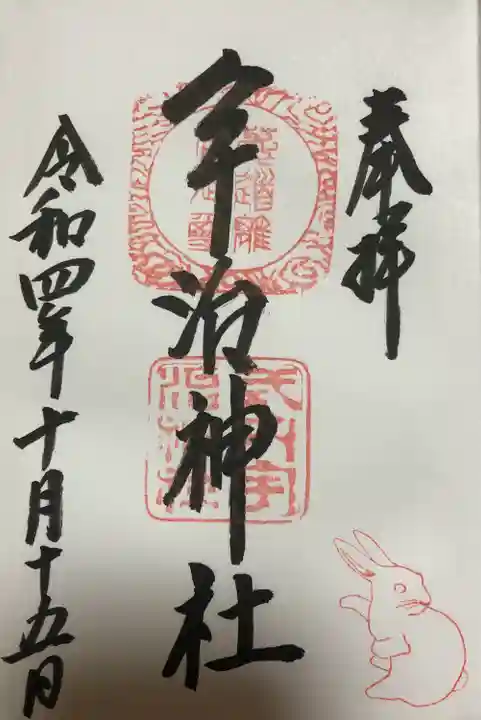 奉拝
宇治神社
令和四年十月十五日